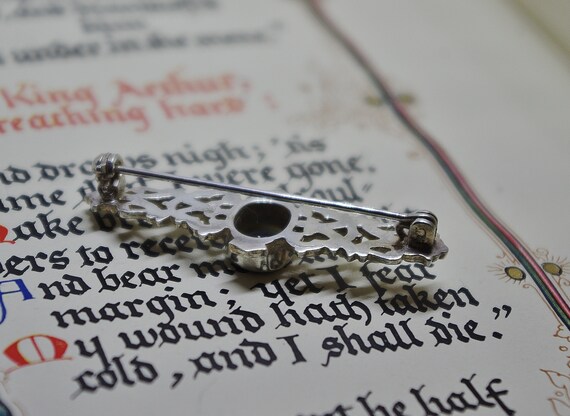 under in the mere."
King Arthur,
reaching hard:
nd draws nigh; 'tis
me I were gone.
ake
ers to receive
And bear me
margin, yet I fear
My wound hath taken
cold, and I shall die."
he half